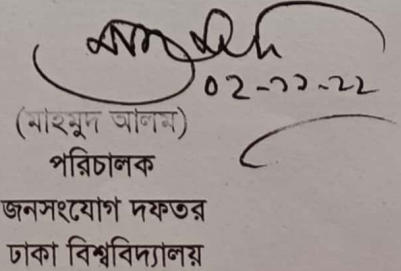 ০২-১১-২২
(মাহমুদ আলম)
পরিচালক
জনসংযোগ দফতর
ঢাকা বিশ্ববিদ্যালয়